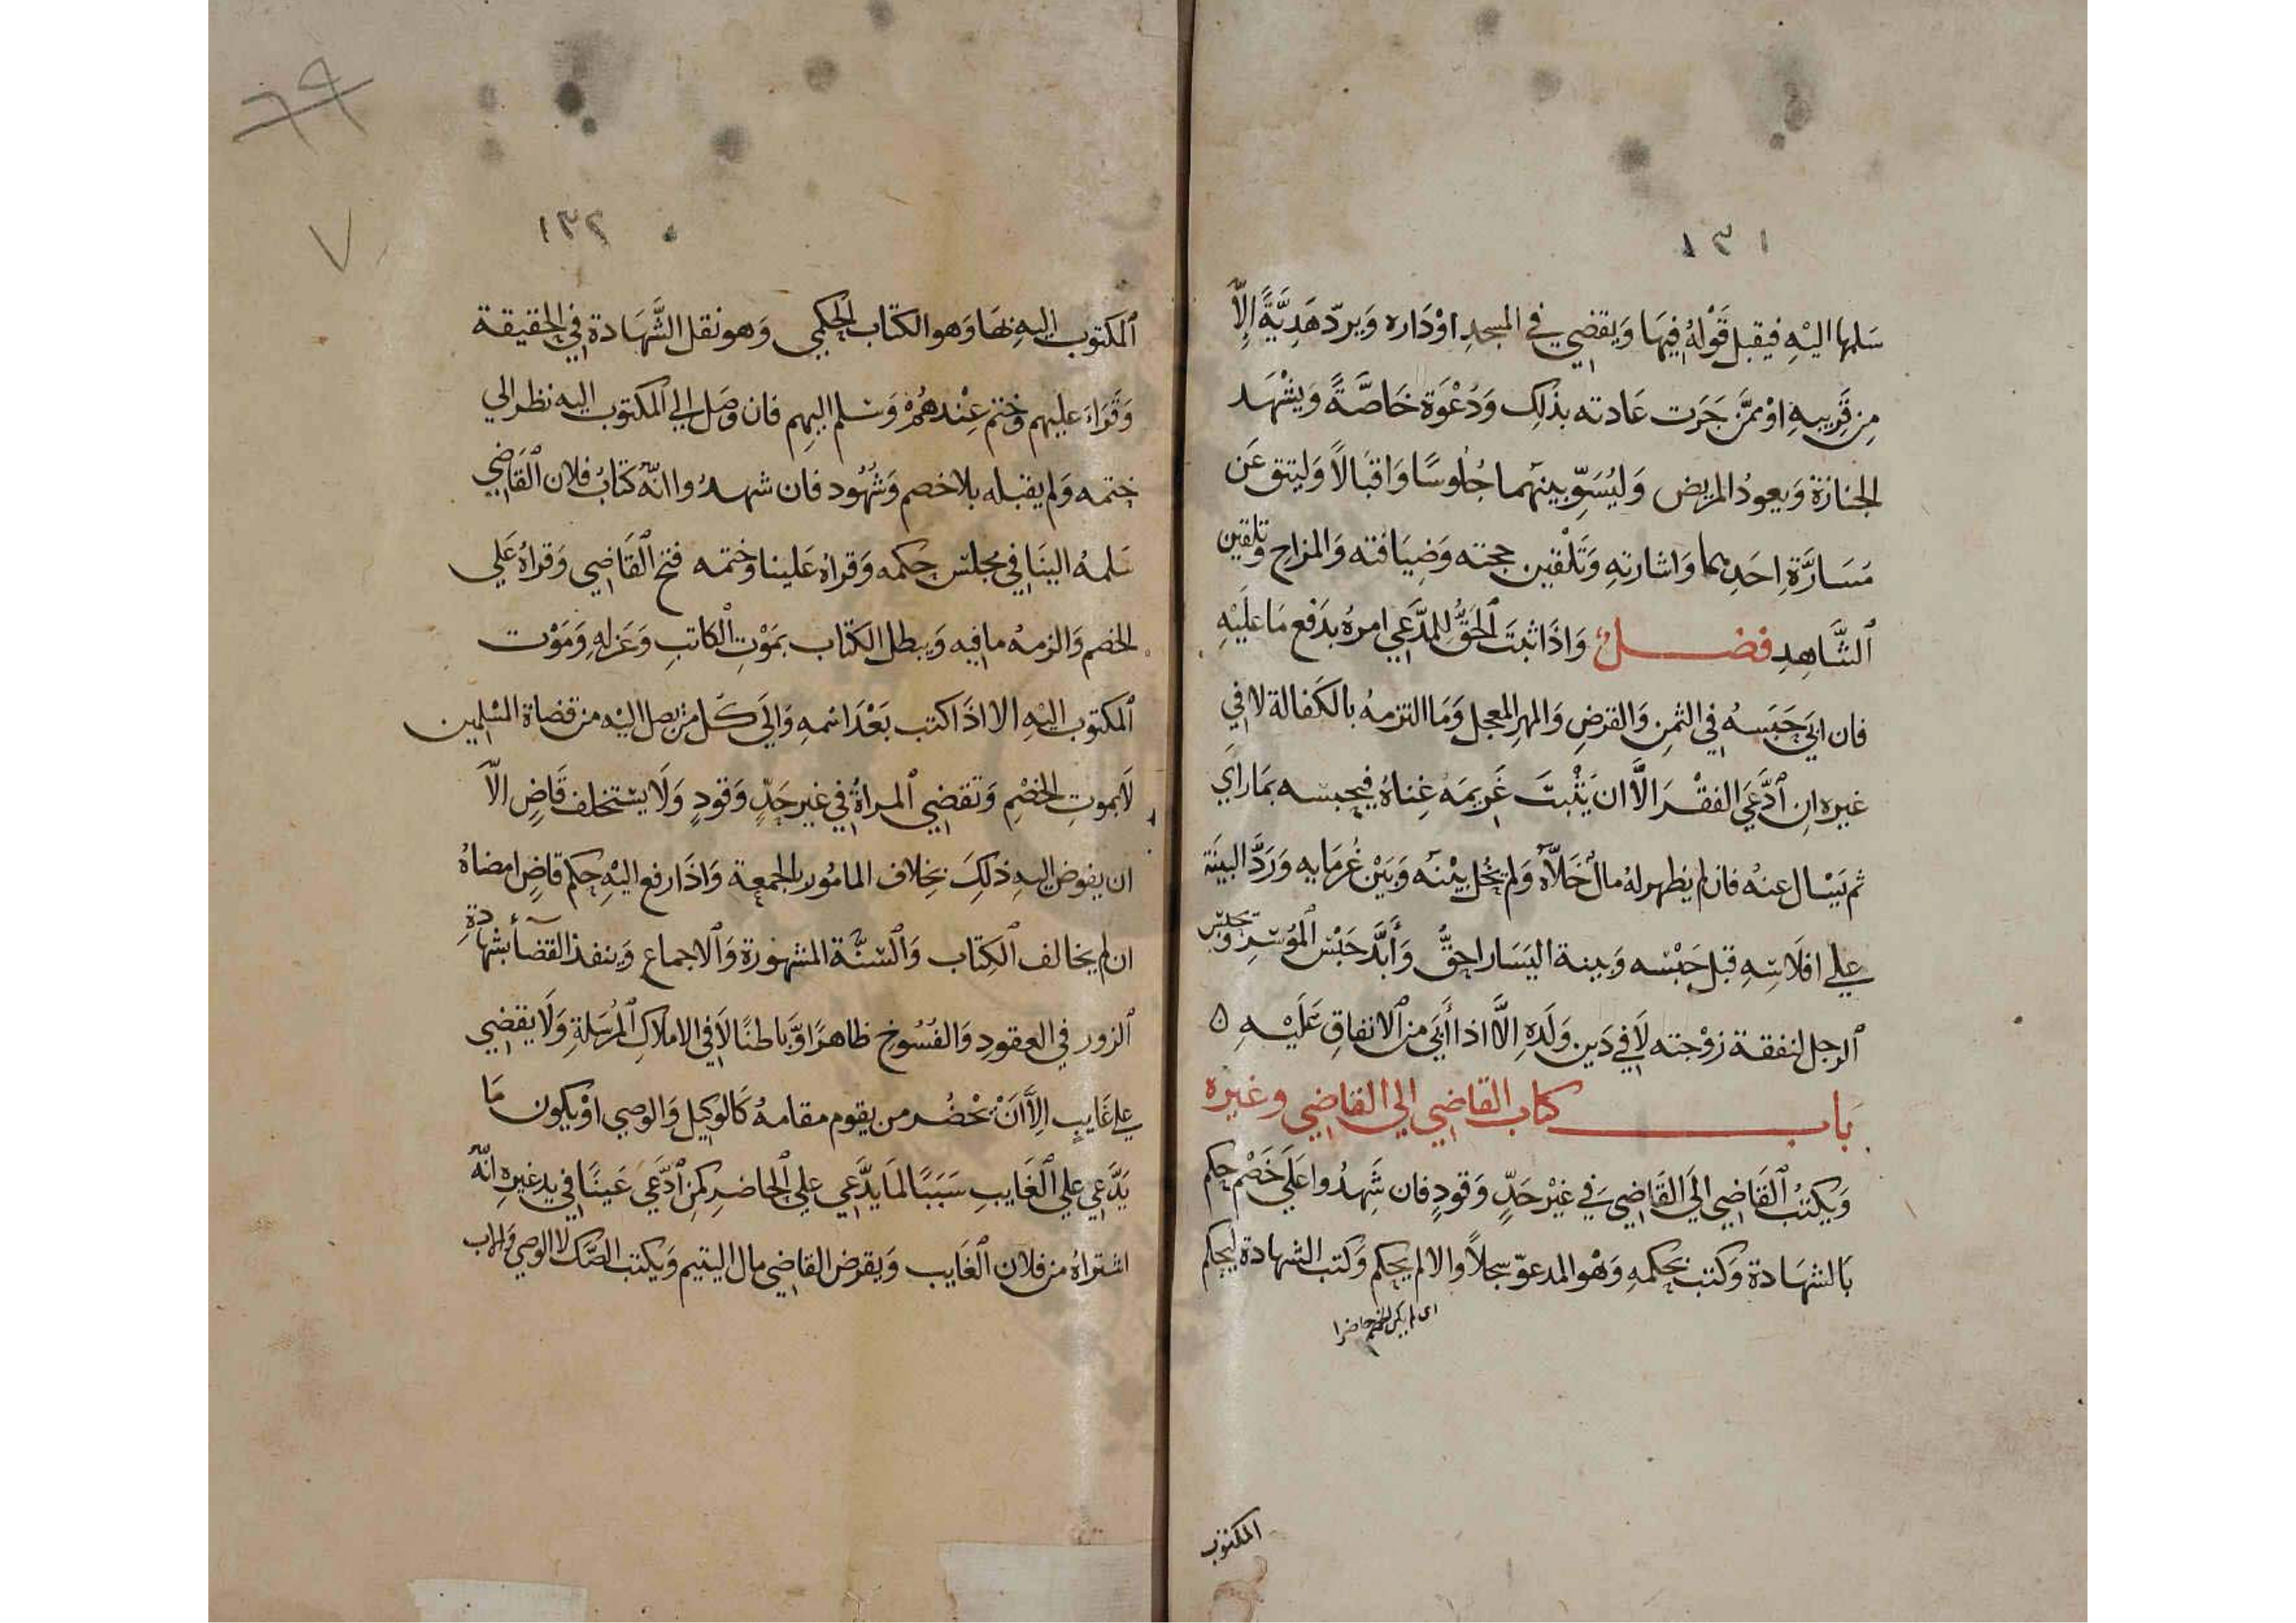 ١٣١
سَلمها اليْهِ فيقبل قَوْلهُ فِيهَا وَيقضي في المسجدِ اوْدَاره وَيردّ هَدِيَّةً اِلاّ
مِن قَرِيبهِ اوْ ممَّن جَرَت عَادته بذَلِك وَدُعْوَة خَاصَّةً وَيشْهَد
الجنازة وَيعودُ المريض وَليُسَوِّ بينهما جُلُوسًا وَاقبَالاً وَليتق عَن
مَسَارَّةِ احَدِهما وَاشارتهِ وَتَلْقين حجته وَضِيَافته وَالمزاح وتلقين
الشَّاهِدِ فصل وَاذَا ثبتَ الحَقُّ للمدَّعي امرهُ بدَفع مَا عَلَيْهِ
فان ابَي حَبَسهُ في الثمنِ وَالقرضِ وَالمهرِ المعجل وَمَا التزمهُ بالكَفالة لا في
غيره ان ادَّعَي الفقْرَ الَّا ان يَثْبتَ غَرِيمَهُ غِناهُ فيحبسه بمَا رَايَ
ثم يَسْال عنهُ فان لم يظهر لهُ مالٌ خَلاَّهُ وَلم يَحُل بيْنَه وَبَيْن غُرمَايه وَرَدَّ البينَة
علي افلاَسِهِ قبل حَبْسه وَبينة اليَسَار احقُّ وَأبَّدَ حَبْس المُوسِرِ وَحبس
الرجل لنفقة زوْجته لاَ في دَين وَلَدهِ اِلاَّ اذا أَبَي من الانفاقِ عَلَيْهِ
باب كتاب القاضي الي القاضي وغيره
وَيكتبُ القَاضِي الَي القَاضِي في غيْر حَدٍّ وَقودٍ فان شَهِدُوا عَلَي خَصْم حكم
بَالشهَادة وَكتب بحكمهِ وَهْو المدعوّ سجلاً والا لم يحكم وَكتب الشهادة ليحكم
اى لم يكن الخصم حاضرا
المكتوب
١٣٢
٧
المكتوب اليهِ بهَا وَهو الكتاب الحكمي وَهو نقل الشَّهَادة في الحقيقة
وَقَرَاءَ عليهم وختم عِنْدهُمْ وَسَلم اليهم فان وصَل الي المكتوب اليه نظر الي
ختمه وَلم يقبله بلا خصم وَشُهُود فان شهدُوا انّه كتابُ فلان القَاضِي
سَلمهُ الينَا في مجلس حكمه وَقرأهُ عَلينا وختمه فتح القَاضِي وَقرأهُ عَلي
الخصم وَالزمهُ ما فيه وَيبطل الكتاب بمَوْت الكاتبِ وَعَزلهِ وَمَوْت
المكتوب اليْهِ الا اذَا كتب بَعْدَ اسمهِ وَالَي كَل من يصل اليْه من قضاة المسْلمين
لاَ بموتِ الخصْمِ وَتقضي المراةُ في غير حَدٍّ وَقودٍ وَلاَ يستخلف قَاضٍ الاّ
ان يفوض اليهِ ذلكَ بخلاف المامُور بالجمعة وَاذَا رفع اليْهِ حكم قاضٍ امضاهُ
ان لم يخالف الكتاب وَالسُّنَّة المشهورة وَالاجماع وَينفذ القضآ بشهادةِ
الزور في العقود وَالفسُوخ ظاهرًا وَّبَاطنًا لاَ في الاملاكِ المرُسَلةِ وَلاَ يقضي
علي غَايبٍ اِلاَّ اَنْ يَحْضُر من يقوم مقامهُ كَالوكيل وَالوصي اوْ يكون مَا
يَدَّعي علي الغَايبِ سَبَبًا لمَا يدَّعي علي الحَاضرِ كمن ادَّعَي عَينًا في يد غيرهِ انّه
اشتراهُ من فلان الغَايب وَيقرض القاضي مال اليتيم وَيكتب الصّك لا الوصي وَالاب